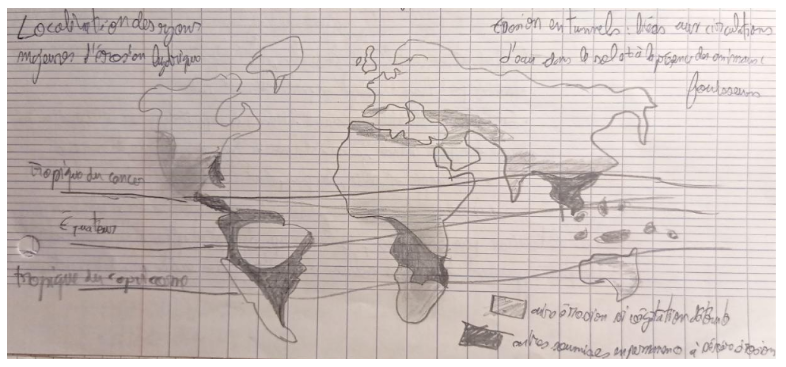 Localisation des zones
majeures d'érosion hydrique
érosion en tunnels : liées aux circulations
d'eau dans le sol et à la présence des animaux
fouisseurs
tropique du cancer
Équateur
tropique du capricorne
érosion si végétation
soumises en permanence à érosion